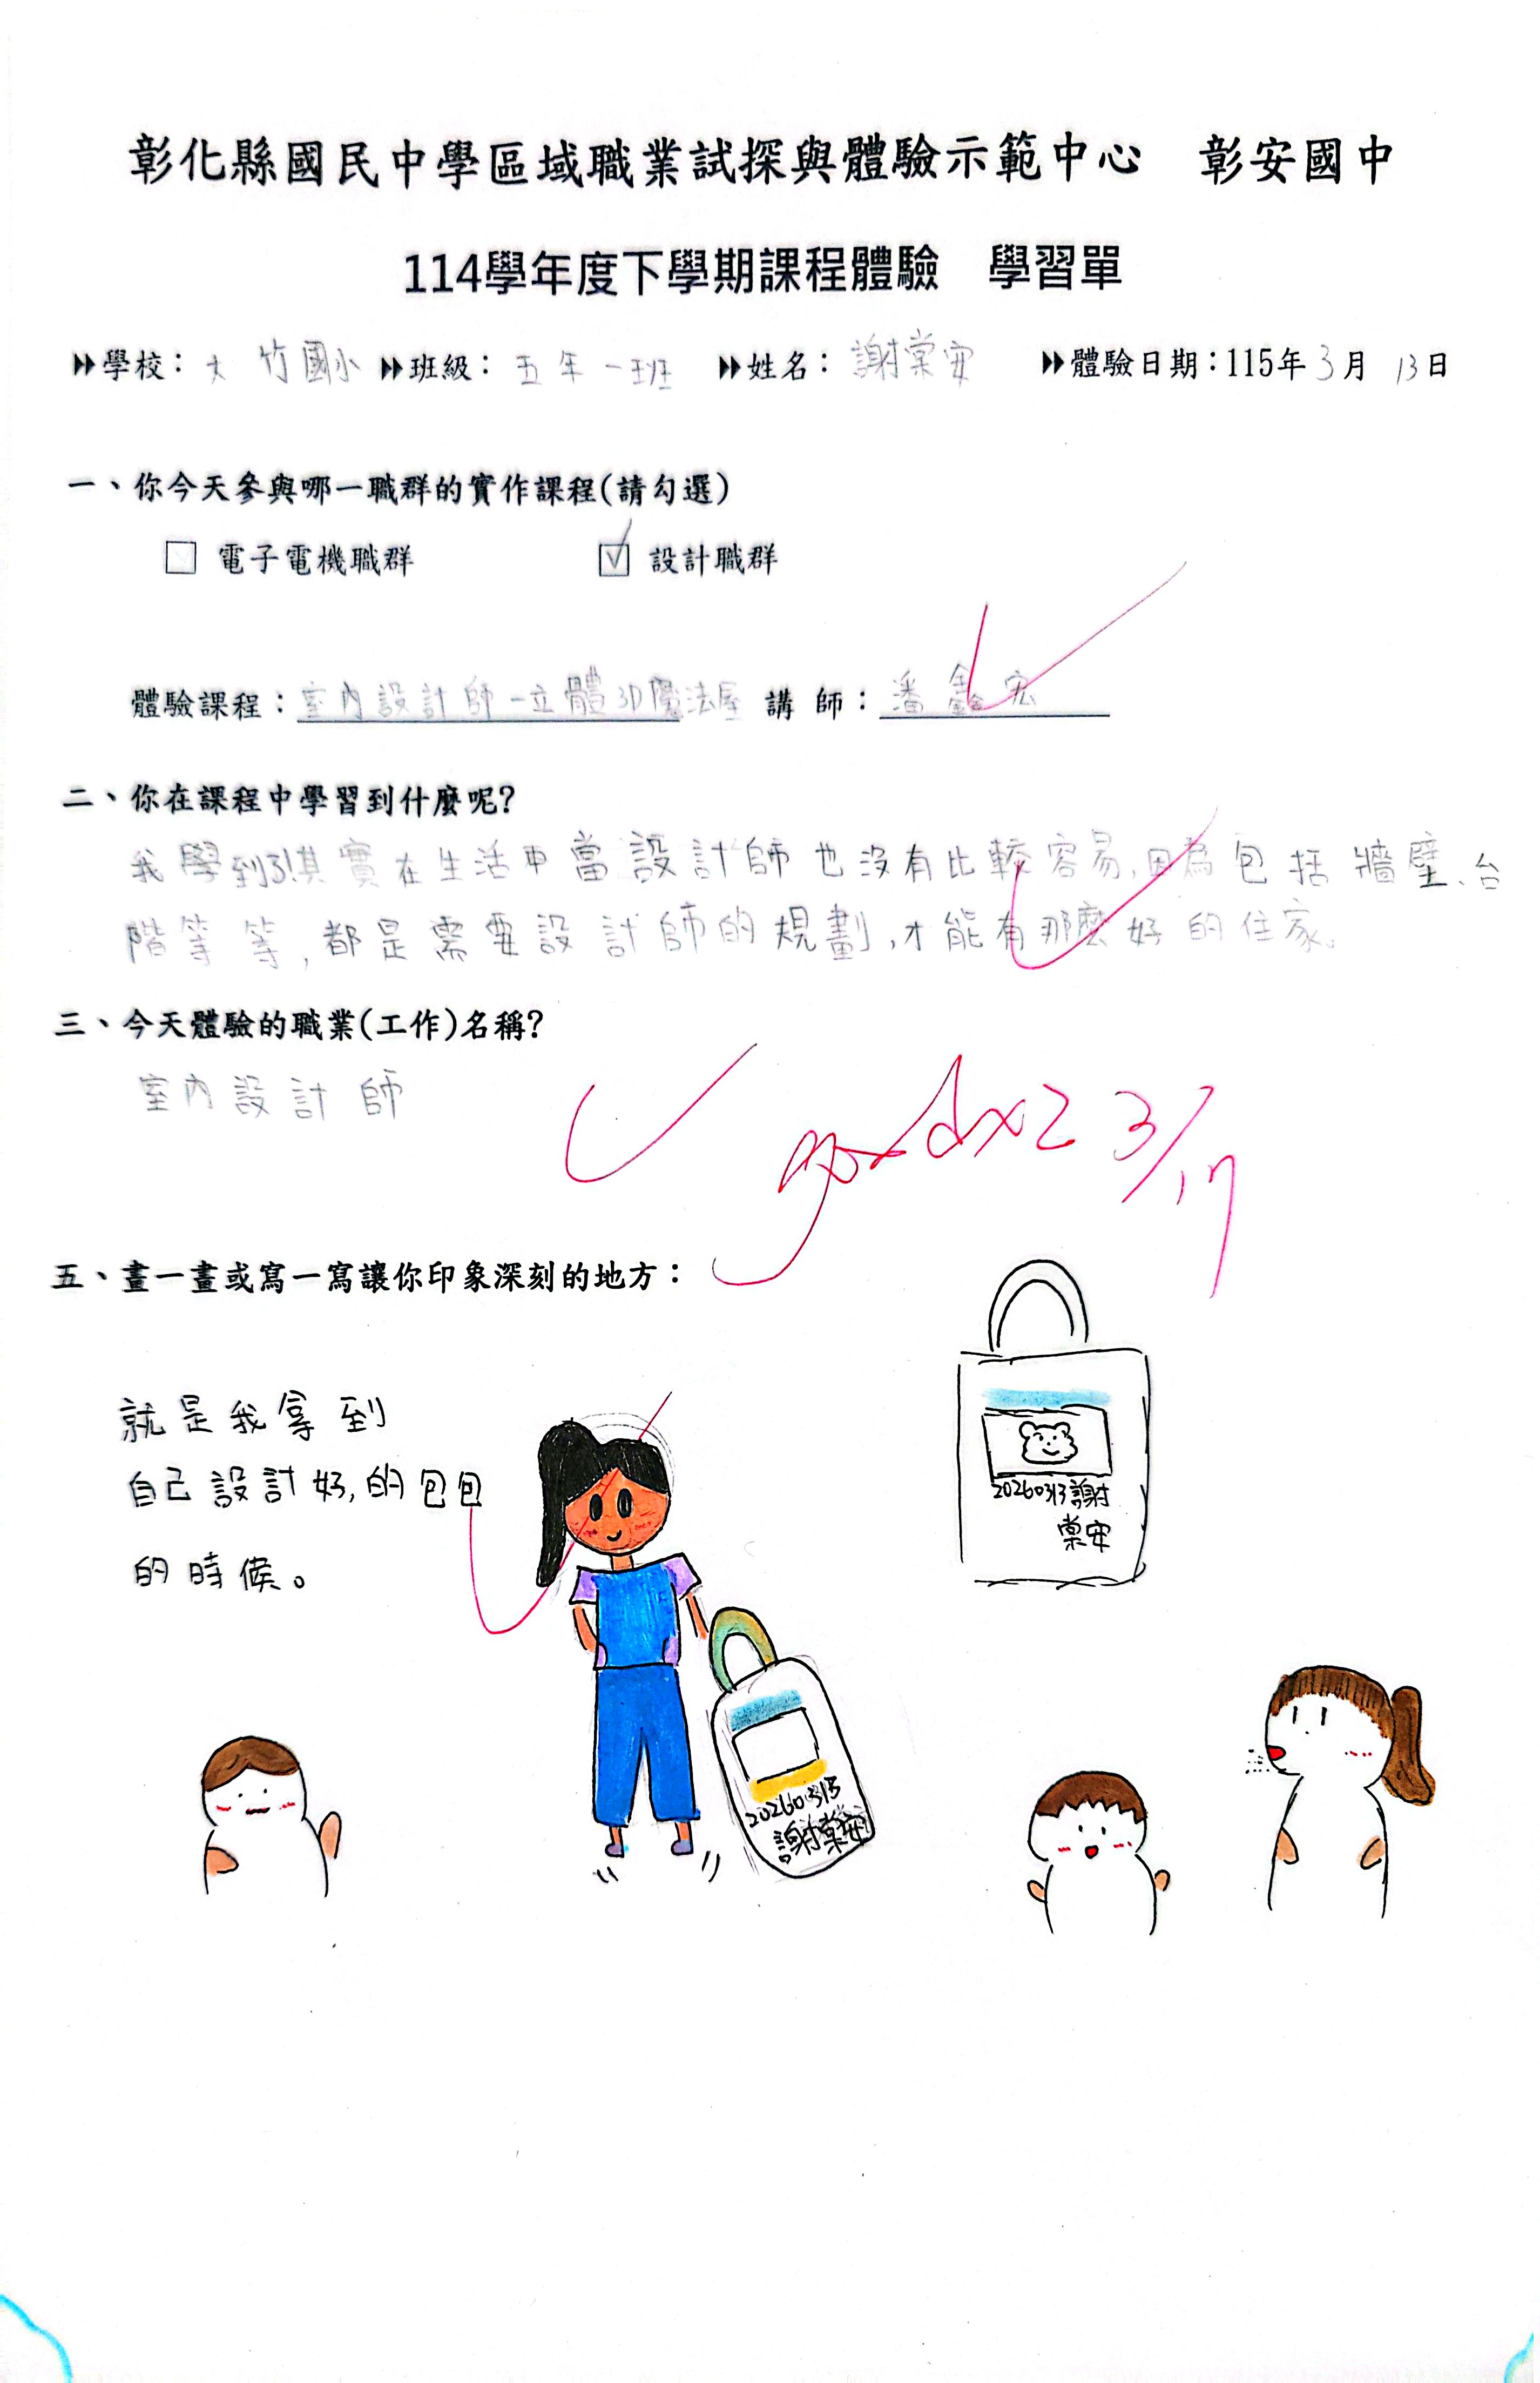 彰化縣國民中學區域職業試探與體驗示範中心 彰安國中
114學年度下學期課程體驗 學習單
學校：大竹國小 班級：五年一班 姓名：謝棠安 體驗日期：115年3月13日
一、你今天參與哪一職群的實作課程(請勾選)
電子電機職群 設計職群
體驗課程：室內設計師-立體3D魔法屋 講師：潘鑫宏
二、你在課程中學習到什麼呢?
我學到了!其實在生活中當設計師也沒有比較容易,因為包括牆壁、台
階等等,都是需要設計師的規劃,才能有那麼好的住家。
三、今天體驗的職業(工作)名稱?
室內設計師
3/17
五、畫一畫或寫一寫讓你印象深刻的地方：
就是我拿到
自己設計好,的包包
的時候。
20260313謝
棠安
20260313
謝棠安